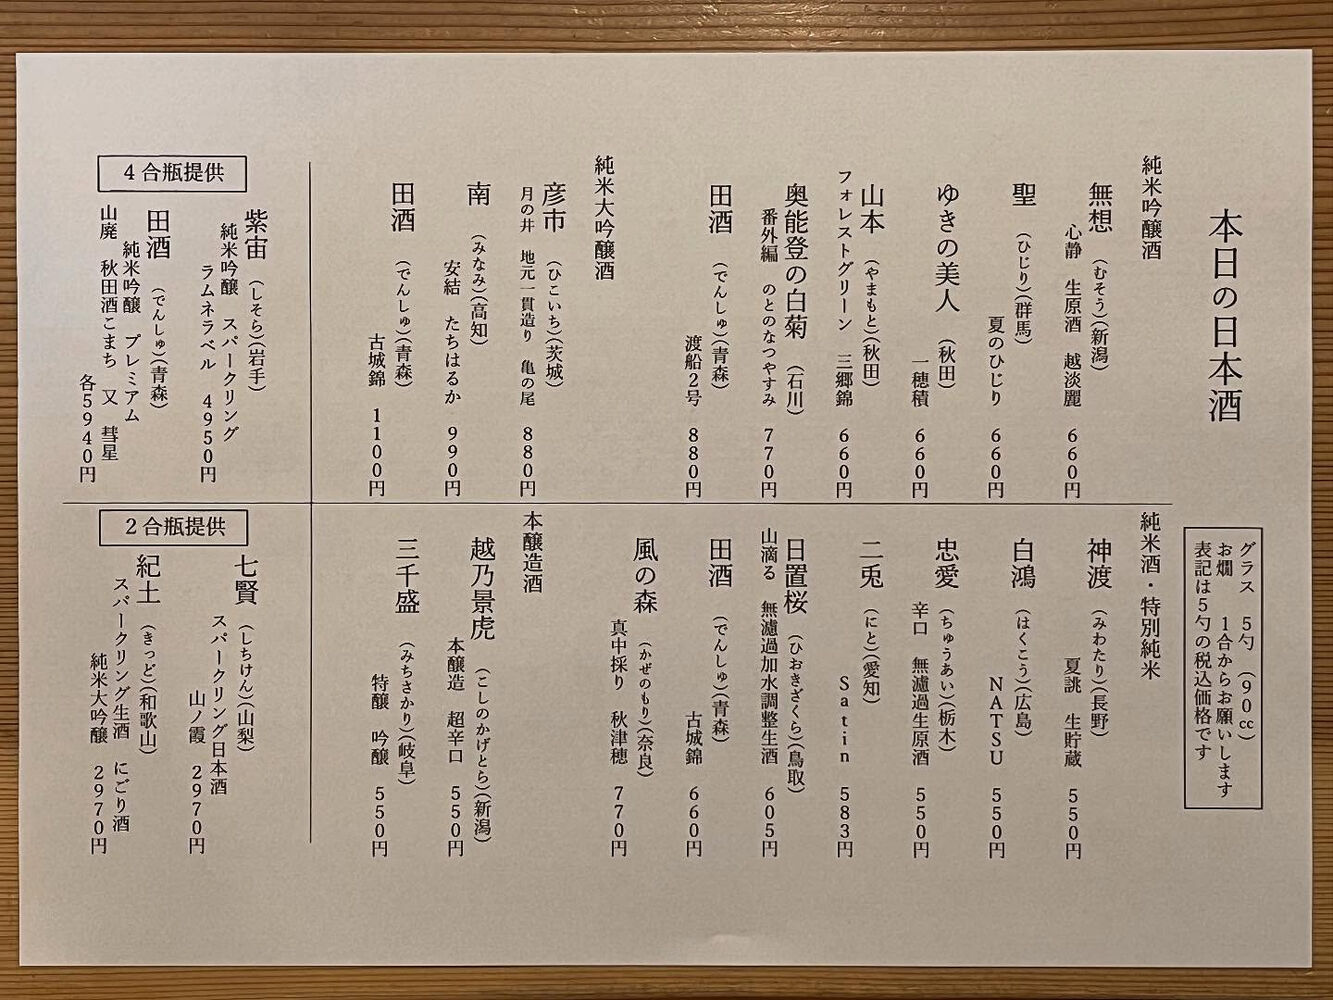 本日の日本酒
グラス　5勺　（90㏄）
お燗　1合からお願いします
表記は5勺の税込価格です
純米吟醸酒
無想　（むそう）（新潟）
心静　生原酒　越淡麗　660円
聖　（ひじり）（群馬）
夏のひじり　660円
ゆきの美人　（秋田）
一穂積　660円
山本　（やまもと）（秋田）
フォレストグリーン　三郷錦　660円
奥能登の白菊　（石川）
番外編　のとのなつやすみ　770円
田酒　（でんしゅ）（青森）
渡船2号　880円
純米大吟醸酒
彦市　（ひこいち）（茨城）
月の井　地元一貫造り　亀の尾　880円
南　（みなみ）（高知）
安結　たちはるか　990円
田酒　（でんしゅ）（青森）
古城錦　1100円
純米酒・特別純米
神渡　（みわたり）（長野）
夏誂　生貯蔵　550円
白鴻　（はくこう）（広島）
NATSU　550円
忠愛　（ちゅうあい）（栃木）
辛口　無濾過生原酒　550円
二兎　（にと）（愛知）
Satin　583円
日置桜　（ひおきざくら）（鳥取）
山滴る　無濾過加水調整生酒　605円
田酒　（でんしゅ）（青森）
古城錦　660円
風の森　（かぜのもり）（奈良）
真中採り　秋津穂　770円
本醸造酒
越乃景虎　（こしのかげとら）（新潟）
本醸造　超辛口　550円
三千盛　（みちさかり）（岐阜）
特醸　吟醸　550円
4合瓶提供
紫宙　（しそら）（岩手）
純米吟醸　スパークリング
ラムネラベル　4950円
田酒　（でんしゅ）（青森）
純米吟醸　プレミアム
山廃　秋田酒こまち　又　彗星
各5940円
2合瓶提供
七賢　（しちけん）（山梨）
スパークリング日本酒
山ノ霞　2970円
紀土　（きっど）（和歌山）
スパークリング生酒　にごり酒
純米大吟醸　2970円